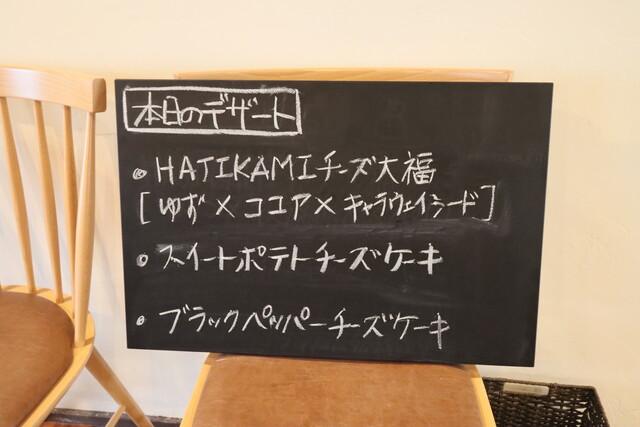 本日のデザート
• HAJIKAMIチーズ大福
[ゆず×ココア×キャラウェイシード]
• スイートポテトチーズケーキ
• ブラックペッパーチーズケーキ